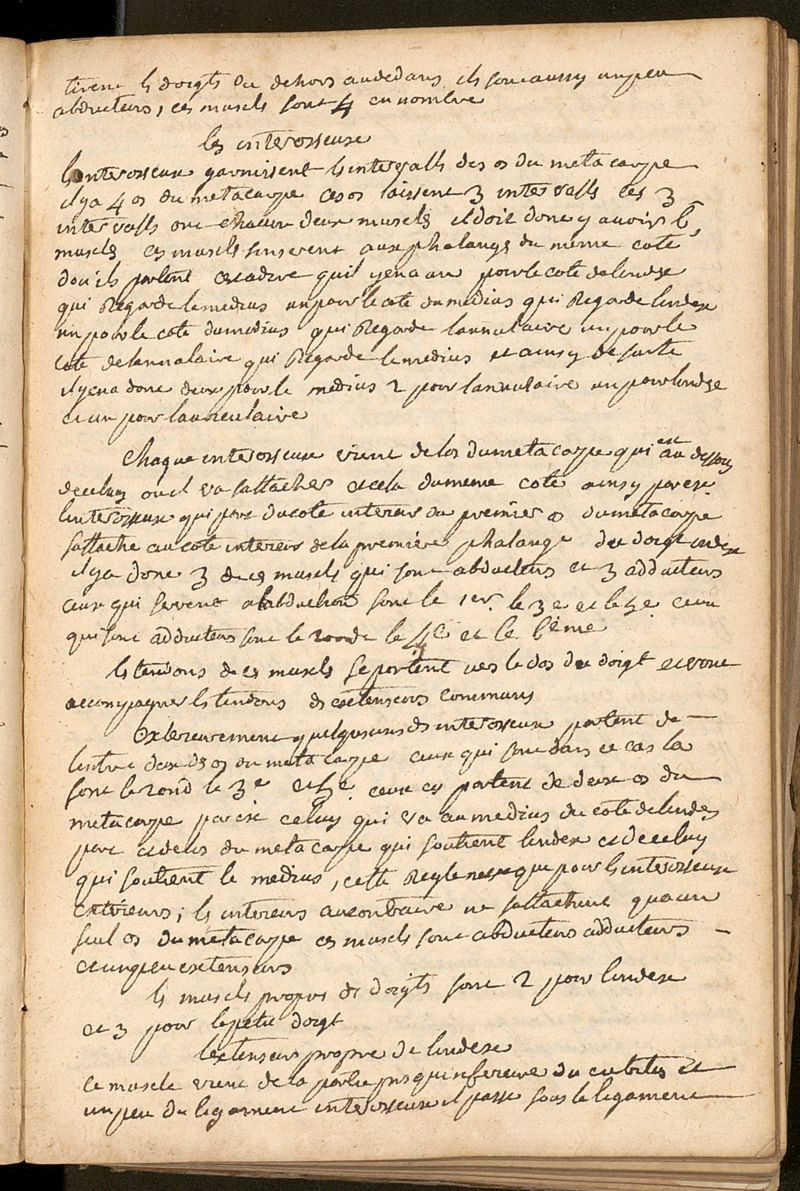 tirent les doigts du dehors audedans ils sont aussy un peu
abducteurs, ces muscls sont 4 en nombre
les interosseux
les interosseux garnissent ls intervalls des os du metacarpe
il y a 4 os du metacarpe ces os laissent 3 intervalls ces 3
intervalls ont chacun deux muscls il doit donc y avoir 6
muscls ces muscls sinserent aux phalangs du meme coté
dou ils partent cestadire quil yena un pour le coté de lindex
qui Regarde le medius un pour le coté du medius qui Regarde lindex
un pour le coté du medius qui Regarde lannulaire un pour le
coté de lannalaire qui Regarde le medius et ainsy de suite
il yena donc deux pour le medius 2 pour lannulaire un pour lindex
et un pour lauriculaire
Chaque interosseux vient de los du metacarpe qui est au dessous
de celuy ou il va sattacher et cela du meme coté ainsy par ex.
linterosseux qui part du coté interieur du premier os du metacarpe
sattache au coté interieur de la premiere phalange du doigt index
il y a donc 3 de ces muscls qui sont abducteurs et 3 adducteurs
ceux qui servent a labduction sont le 1er. le 3e et le 5e ceux
qui sont adducteurs sont le 2onde le 4e et le 6eme
ls tendons de ces muscls se portent vers le dos du doigt et vont
accompagner ls tendons ds extenseurs communs
Exterieurement quelquesuns ds interosseux partent de
lentre deux ds os du metacarpe ceux qui sont dans ce cas la
sont le 2ond le 3e et 5e ceux cy partent de deux os du
metacarpe par ex celuy qui va au medius du coté de lindex
part et de los du metacarpe qui soutient lindex et de celuy
qui soutient le medius, cette Regle nest que pour ls interosseux
exterieurs; ls interieurs au contraire ne sattachent qua un
seul os du metacarpe ces muscls sont abducteurs adducteurs
et un peu extenseurs
ls muscls propres ds doigts sont 2 pour lindex
et 3 pour le petit doigt
lextenseur propre de lindex
ce muscle vient de la partie presqu inferieure du cubitus et
un peu du ligament interosseux il passe sous le ligament